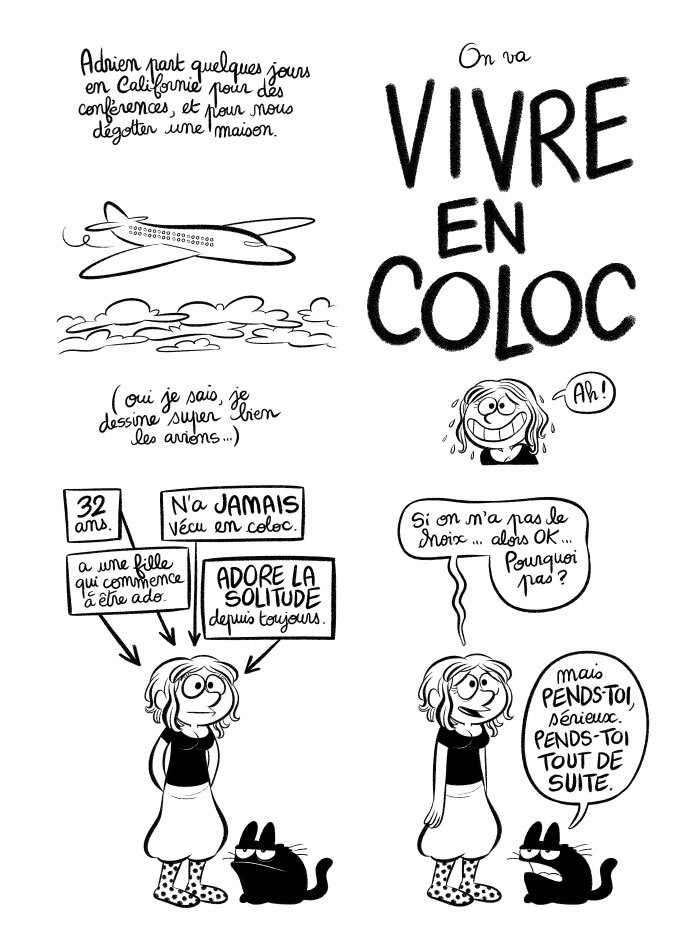 Adrien part quelques jours
en Californie pour des
conférences, et pour nous
dégotter une maison.
(oui je sais, je
dessine super bien
les avions...)
On va
VIVRE
EN
COLOC
Ah!
32
ans.
N'a JAMAIS
vécu en coloc.
a une fille
qui commence
à être ado.
ADORE LA
SOLITUDE
depuis toujours.
Si on n'a pas le
choix... alors OK...
Pourquoi
pas?
mais
PENDS-TOI,
sérieux.
PENDS-TOI
TOUT DE
SUITE.